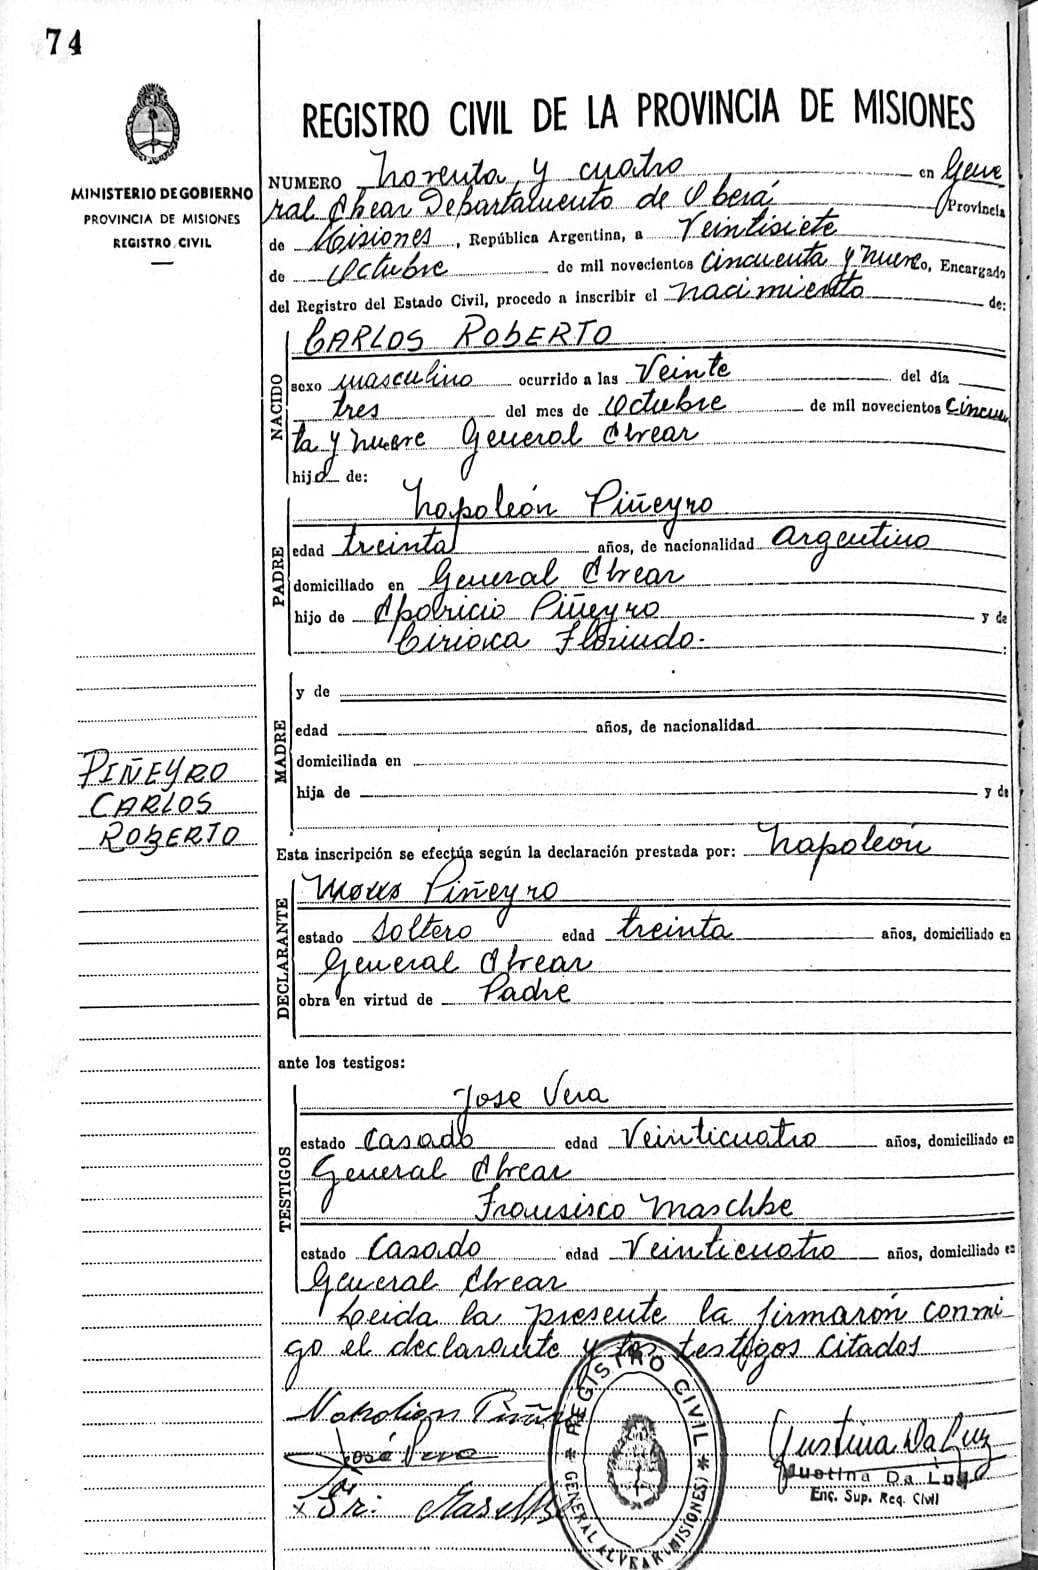 74
REGISTRO CIVIL DE LA PROVINCIA DE MISIONES
MINISTERIO DE GOBIERNO
PROVINCIA DE MISIONES
REGISTRO CIVIL
NUMERO Noventa y cuatro en Gene
ral Alvear Departamento de Oberá Provincia
de Misiones, República Argentina, a Veintisiete
de Octubre de mil novecientos Cincuenta y nueve, Encargado
del Registro del Estado Civil, procedo a inscribir el nacimiento de:
NACIDO
CARLOS ROBERTO
sexo masculino ocurrido a las Veinte del día
tres del mes de Octubre de mil novecientos Cincuen
ta y nueve General Alvear
hijo de:
PADRE
Napoleón Piñeyro
edad treinta años, de nacionalidad Argentino
domiciliado en General Alvear
hijo de Aparicio Piñeyro y de
Ciriaca Florindo.
MADRE
y de
edad años, de nacionalidad
domiciliada en
hija de y de
PIÑEYRO
CARLOS
ROBERTO
Esta inscripción se efectúa según la declaración prestada por: Napoleón
DECLARANTE
Piñeyro
estado Soltero edad treinta años, domiciliado en
General Alvear
obra en virtud de Padre
ante los testigos:
TESTIGOS
Jose Vera
estado Casado edad Veinticuatro años, domiciliado en
General Alvear
Fransisco Maschke
estado Casado edad Veinticuatro años, domiciliado en
General Alvear
Leida la presente la firmarón conmi
go el declarante y los testigos Citados
José Vera
Justina Da Luz
Justina Da Luz
Enc. Sup. Reg. Civil
REGISTRO CIVIL
GENERAL ALVEAR (MISIONES)